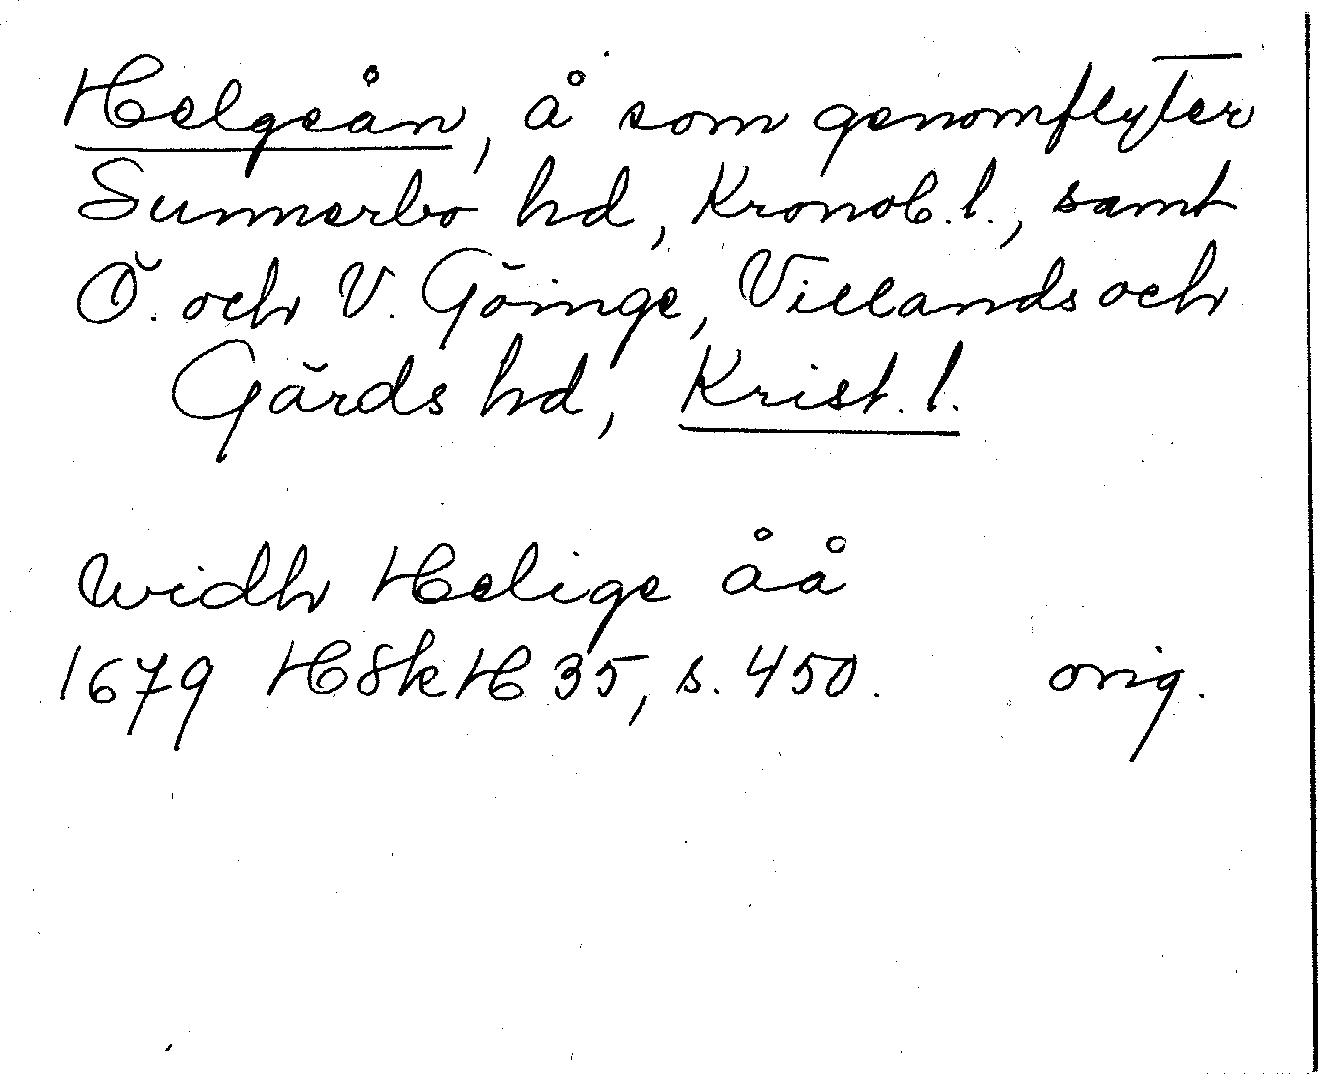 Helgeån, å som genomflyter
Sunnerbo hd, Kronob. l., samt
Ö. och V. Göinge, Villands och
Gärds hd, Krist. l.
widh Helige åå
1679 HSkH 35, s. 450. orig.